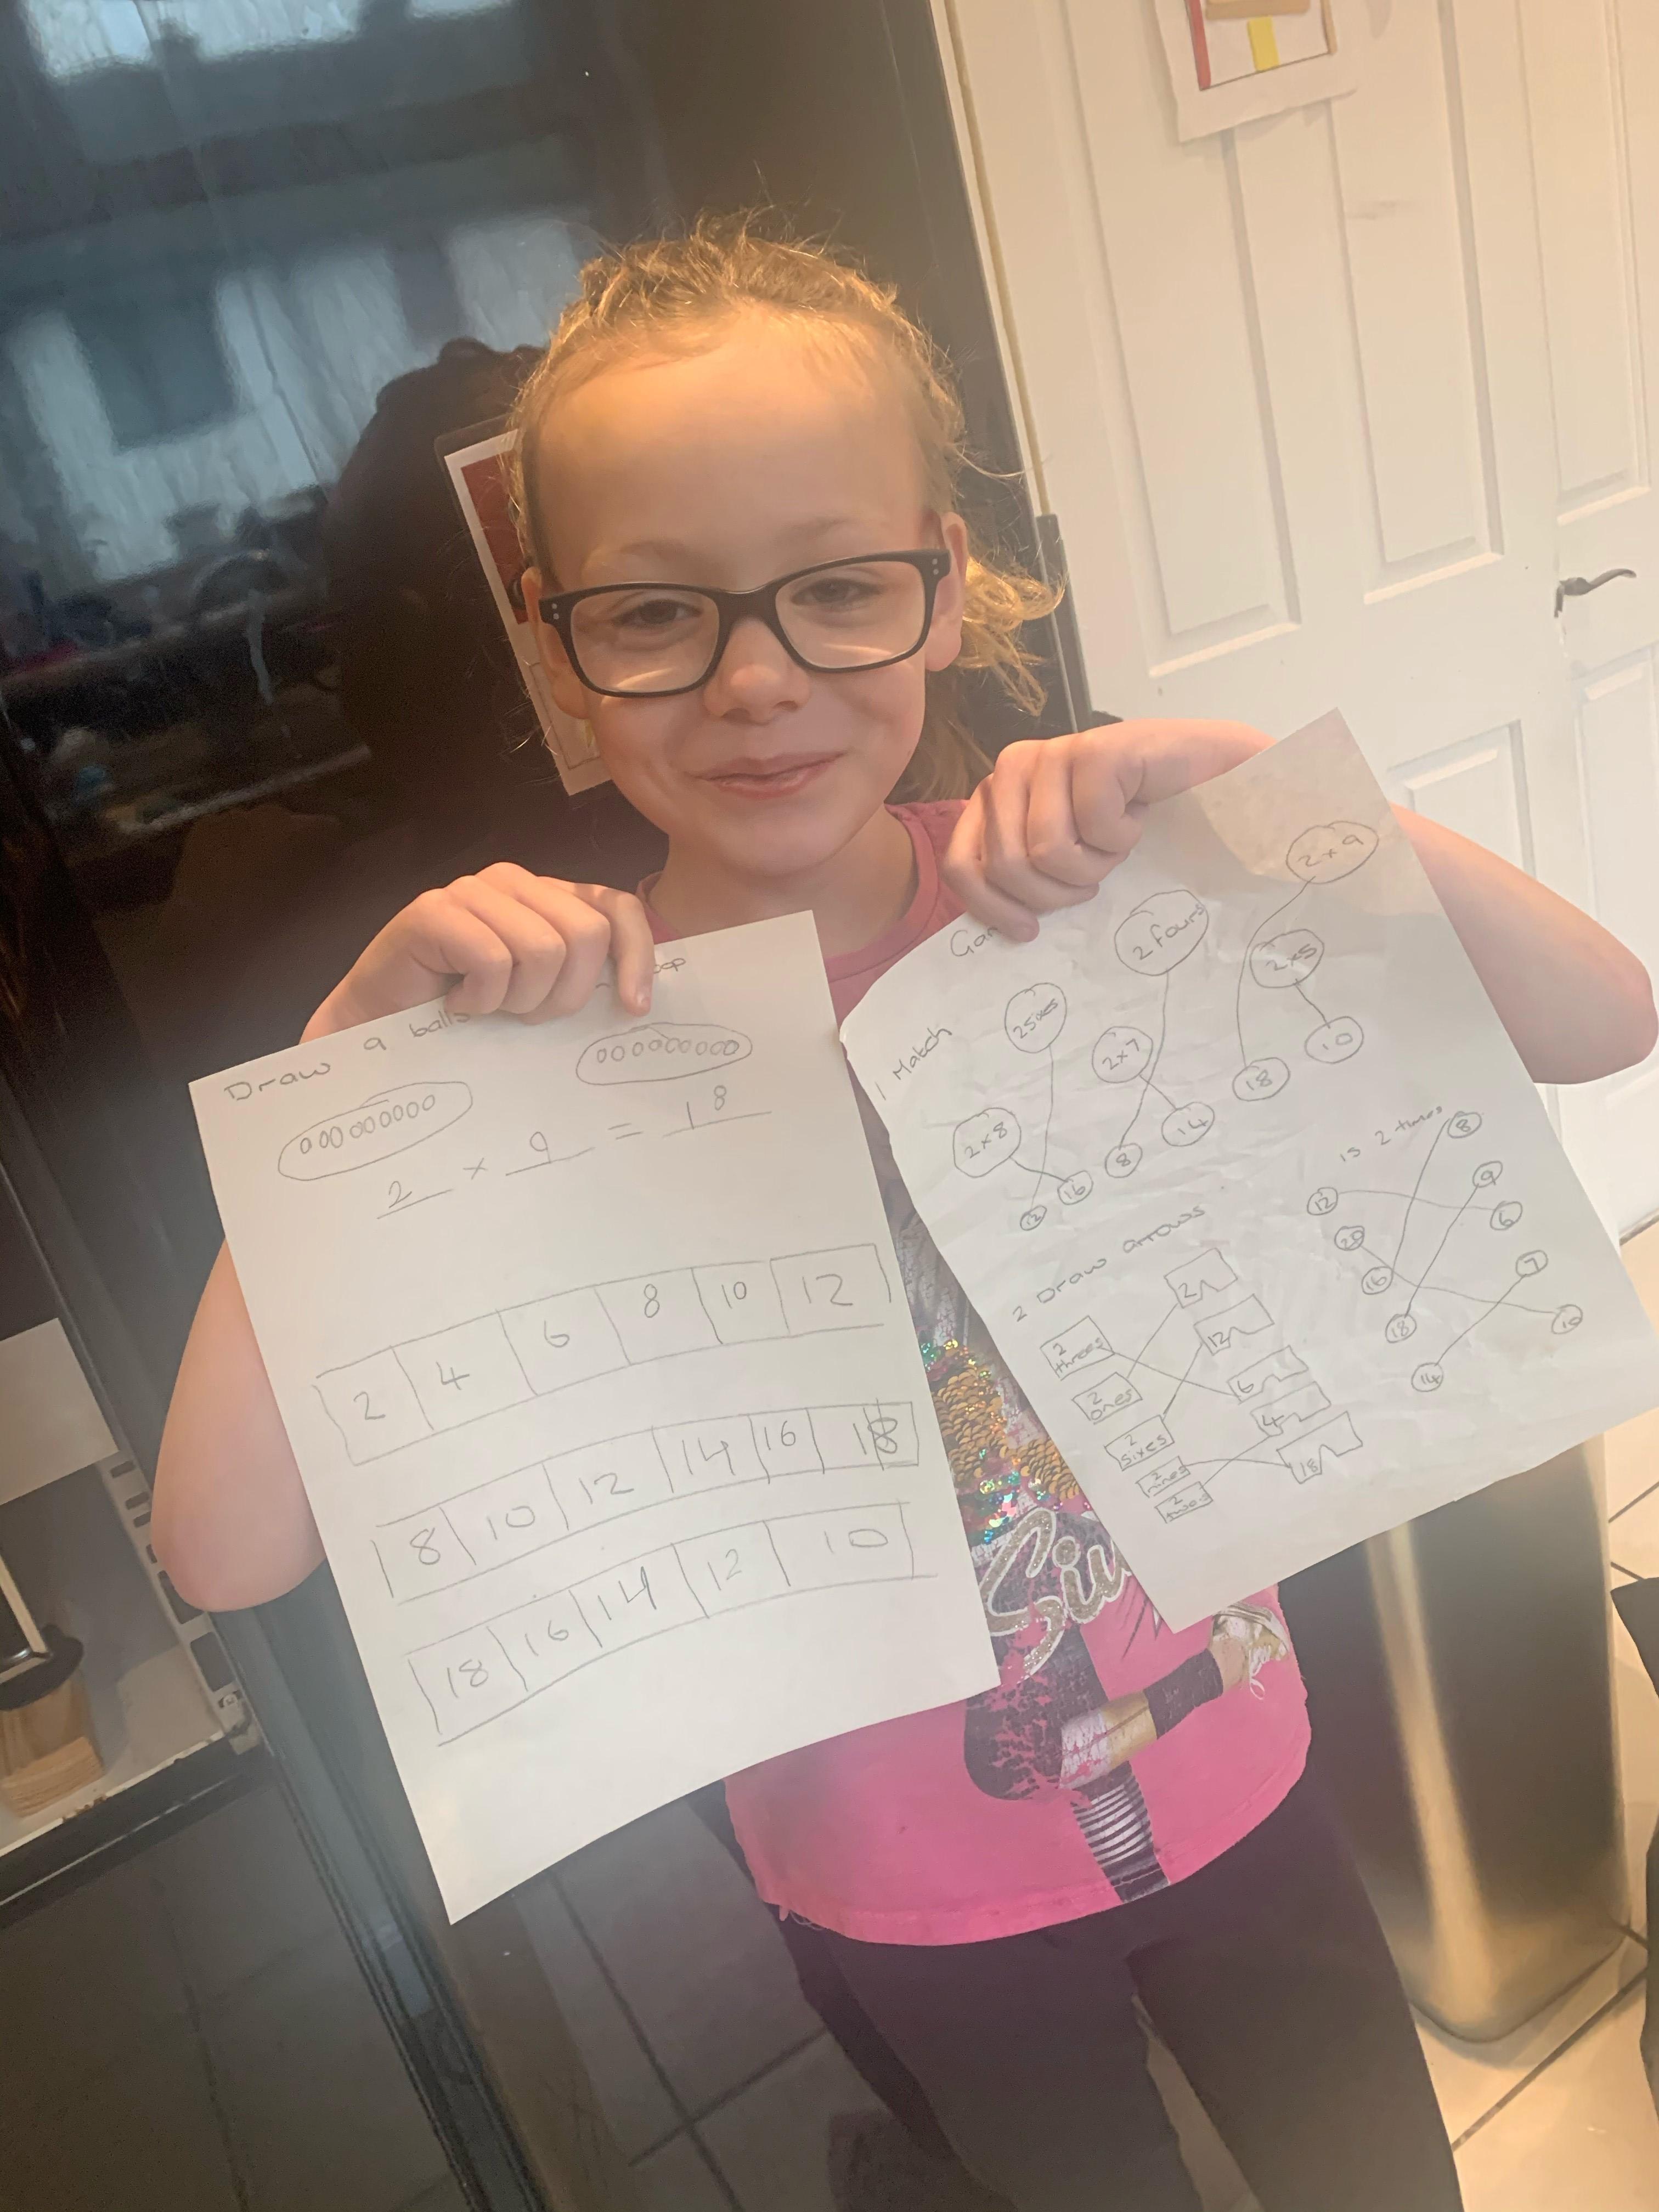 Draw 9 balls
2 × 9 = 18
2 4 6 8 10 12
8 10 12 14 16 18
18 16 14 12 10
1 Match
2 fours
2 × 9
2 × 7
2×5
2 × 8
12
16
8
14
18
10
2 Draw arrows
2 threes
2 ones
2 sixes
2 nines
2 twos
2
12
6
4
18
is 2 times
12
20
16
18
14
8
9
6
7
10